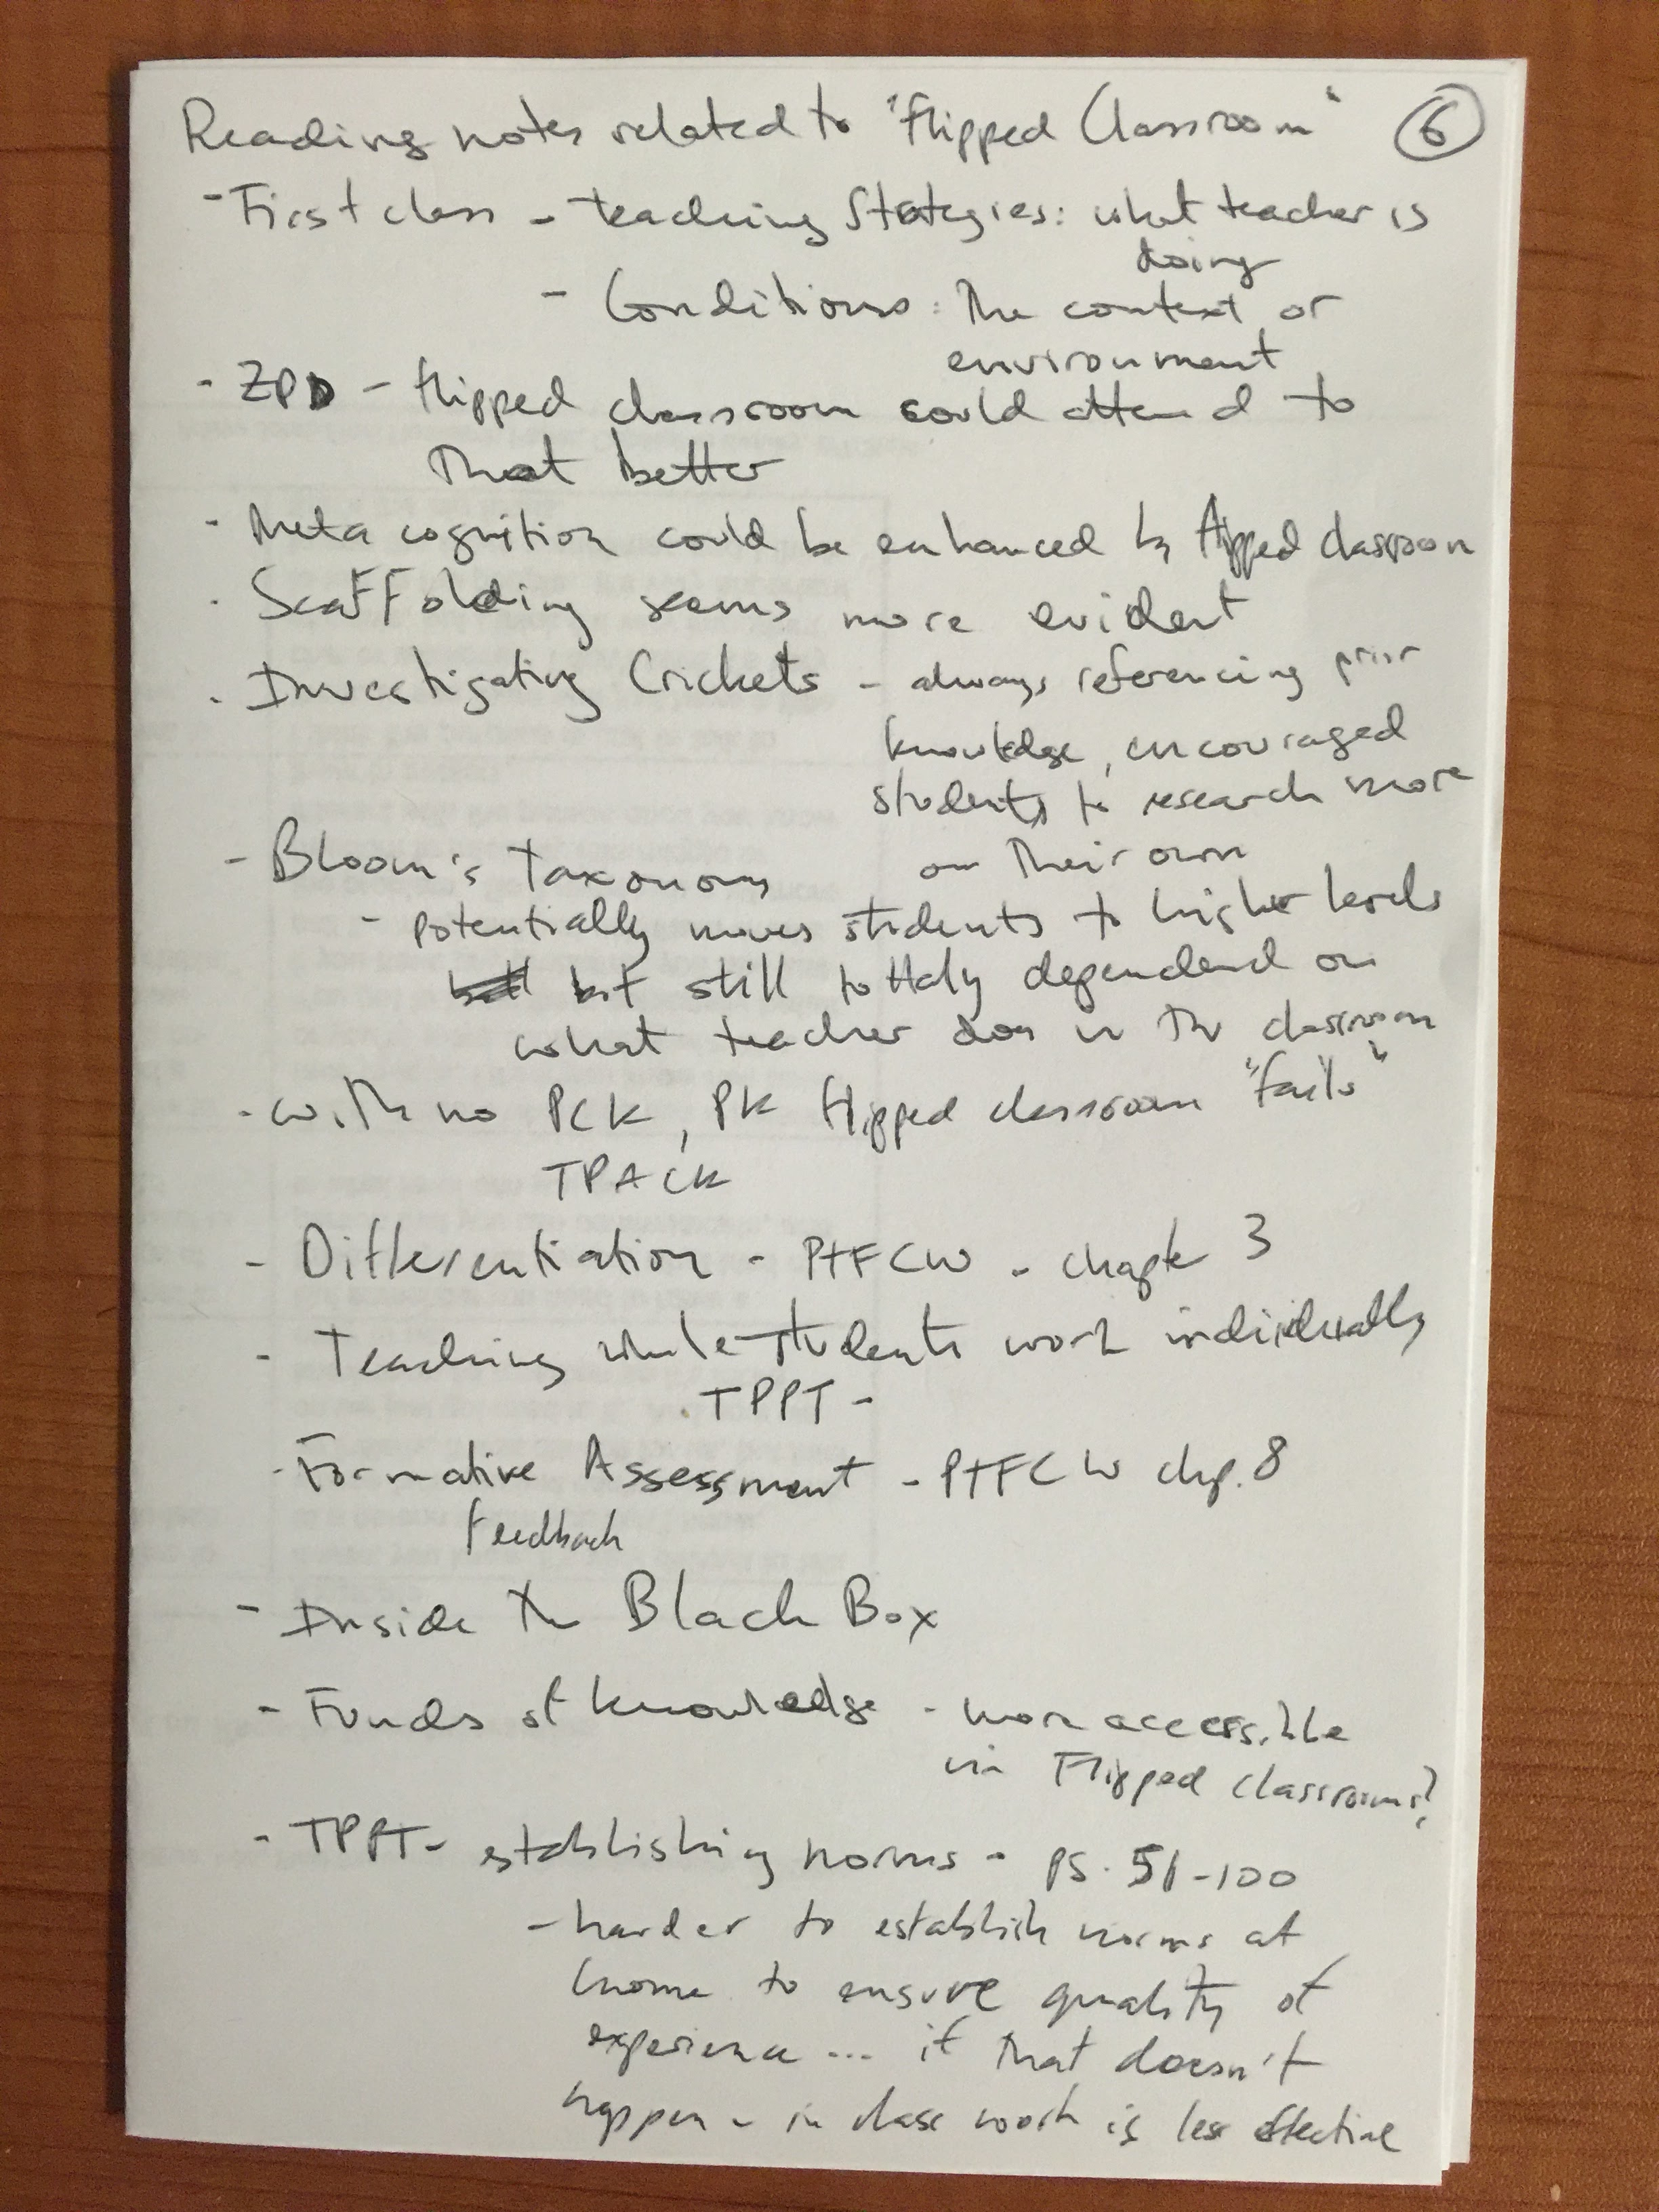 Reading notes related to "Flipped Classroom" 6
- First class - teaching Strategies: what teacher is
doing
- Conditions: The context or
environment
- ZPD - flipped classroom could attend to
That better
- Meta cognition could be enhanced by flipped classroom
- Scaffolding seems more evident
- Investigating Crickets - always referencing prior
knowledge, encouraged
students to research more
on their own
- Bloom's Taxonomy
- potentially moves students to higher levels
but still tottaly dependend on
what teacher does in the classroom
- with no PCK, PK flipped classroom "fails"
TPACK
- Differentiation - PtFCW - chapter 3
- Teaching while students work individually
TPPT -
- Formative Assessment - PtFCW chp. 8
Feedback
- Inside the Black Box
- Funds of knowledge - more accessible
via Flipped classrooms?
- TPPT - establishing norms - pg. 51-100
- harder to establish norms at
home to ensure quality of
experience ... if that doesn't
happen - in class work is less effective